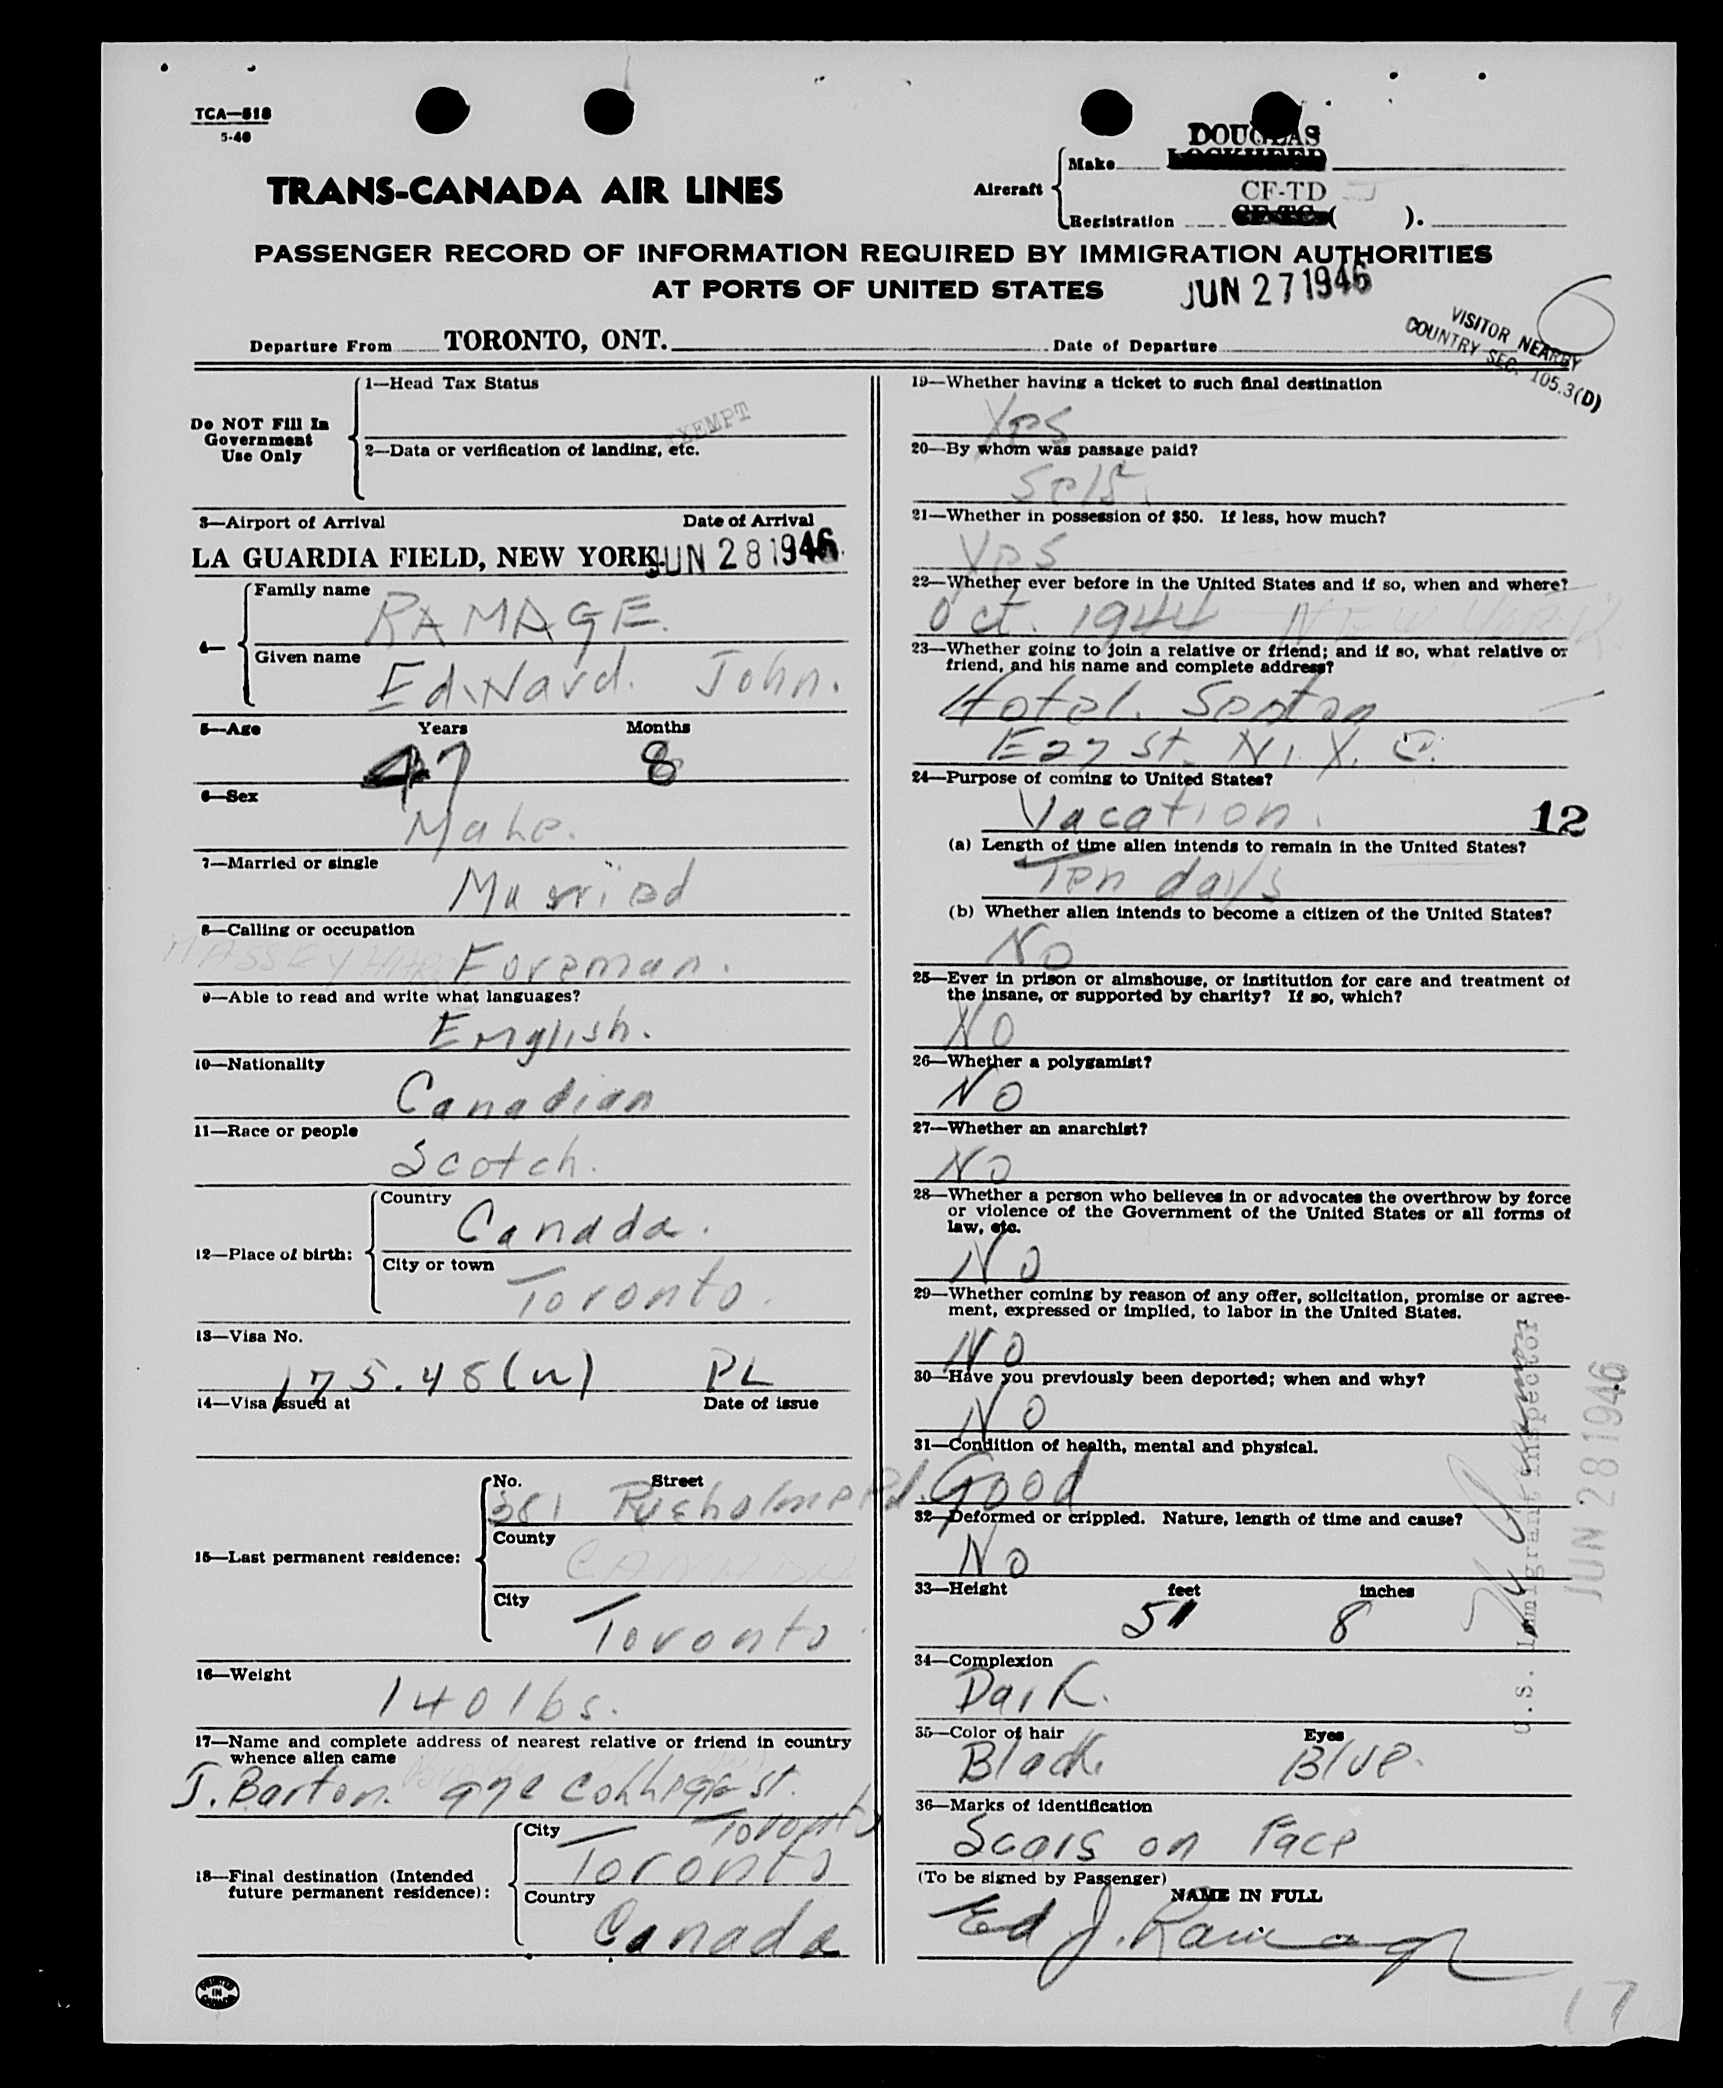 TCA—518
5-40
DOUGLAS
Make LOCKHEED
TRANS-CANADA AIR LINES
Aircraft
CF-TD
Registration CF-TC- ( ).
PASSENGER RECORD OF INFORMATION REQUIRED BY IMMIGRATION AUTHORITIES
AT PORTS OF UNITED STATES
JUN 27 1946
6
VISITOR NEARBY
COUNTRY SEC. 105.3(D)
Departure From TORONTO, ONT. Date of Departure
Do NOT Fill In
Government
Use Only
1—Head Tax Status
EXEMPT
2—Data or verification of landing, etc.
3—Airport of Arrival Date of Arrival
LA GUARDIA FIELD, NEW YORK. JUN 28 1946
4—
Family name
RAMAGE.
Given name
Edward. John.
5—Age Years Months
47 8
6—Sex
Male.
7—Married or single
Married
8—Calling or occupation
MASSEY HAR Foreman.
9—Able to read and write what languages?
English.
10—Nationality
Canadian
11—Race or people
Scotch.
12—Place of birth:
Country
Canada.
City or town
Toronto.
13—Visa No.
175.48(w) PL
14—Visa issued at Date of issue
15—Last permanent residence:
No. Street
381 Rusholme Rd.
County
CANADA
City
Toronto.
16—Weight
140 lbs.
17—Name and complete address of nearest relative or friend in country
whence alien came
J. Barton. 990 College St.
Toronto
18—Final destination (Intended
future permanent residence):
City
Toronto
Country
Canada
PRINTED
IN
CANADA
19—Whether having a ticket to such final destination
Yes
20—By whom was passage paid?
Self.
21—Whether in possession of $50. If less, how much?
Yes
22—Whether ever before in the United States and if so, when and where?
Oct. 1944 NEW YORK
23—Whether going to join a relative or friend; and if so, what relative or
friend, and his name and complete address?
Hotel. Seton
E 27 St. N. Y. C.
24—Purpose of coming to United States?
Vacation. 12
(a) Length of time alien intends to remain in the United States?
Ten days
(b) Whether alien intends to become a citizen of the United States?
No
25—Ever in prison or almshouse, or institution for care and treatment of
the insane, or supported by charity? If so, which?
No
26—Whether a polygamist?
No
27—Whether an anarchist?
No
28—Whether a person who believes in or advocates the overthrow by force
or violence of the Government of the United States or all forms of
law, etc.
No
29—Whether coming by reason of any offer, solicitation, promise or agree-
ment, expressed or implied, to labor in the United States.
No
30—Have you previously been deported; when and why?
No
31—Condition of health, mental and physical.
Good
32—Deformed or crippled. Nature, length of time and cause?
No
33—Height feet inches
5' 8
34—Complexion
Dark.
35—Color of hair Eyes
Black Blue.
36—Marks of identification
Scars on Face
(To be signed by Passenger)
NAME IN FULL
Ed J. Ramage
U.S. Immigrant Inspector
JUN 28 1946
17